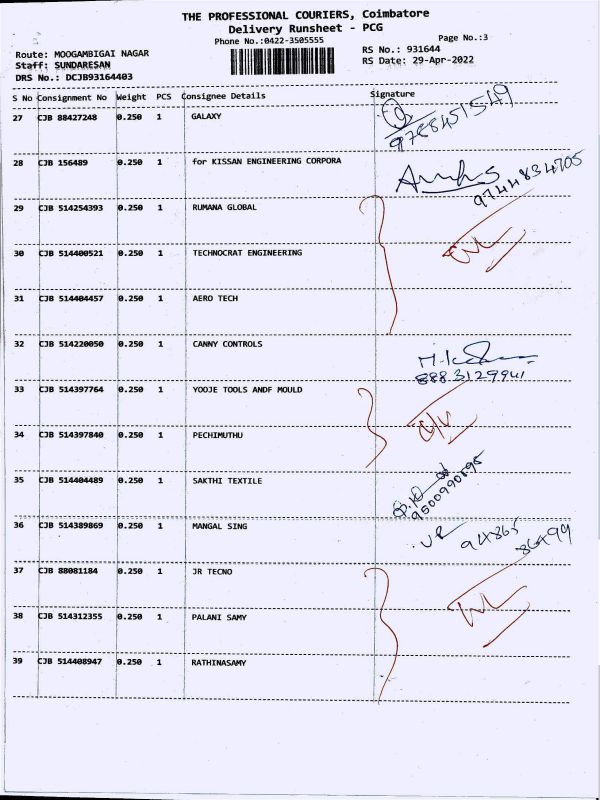 THE PROFESSIONAL COURIERS, Coimbatore
Delivery Runsheet - PCG
Phone No.:0422-3505555
Page No.:3
Route: MOOGAMBIGAI NAGAR
RS No.: 931644
Staff: SUNDARESAN
RS Date: 29-Apr-2022
DRS No.: DCJB93164403
S No Consignment No Weight PCS Consignee Details Signature
27 CJB 88427248 0.250 1 GALAXY
28 CJB 156489 0.250 1 for KISSAN ENGINEERING CORPORA
9744834705
29 CJB 514254393 0.250 1 RUMANA GLOBAL
30 CJB 514400521 0.250 1 TECHNOCRAT ENGINEERING
31 CJB 514404457 0.250 1 AERO TECH
32 CJB 514220050 0.250 1 CANNY CONTROLS
8883129941
33 CJB 514397764 0.250 1 YOOJE TOOLS ANDF MOULD
34 CJB 514397840 0.250 1 PECHIMUTHU
35 CJB 514404489 0.250 1 SAKTHI TEXTILE
9500990595
36 CJB 514389869 0.250 1 MANGAL SING
37 CJB 88081184 0.250 1 JR TECNO
38 CJB 514312355 0.250 1 PALANI SAMY
39 CJB 514408947 0.250 1 RATHINASAMY